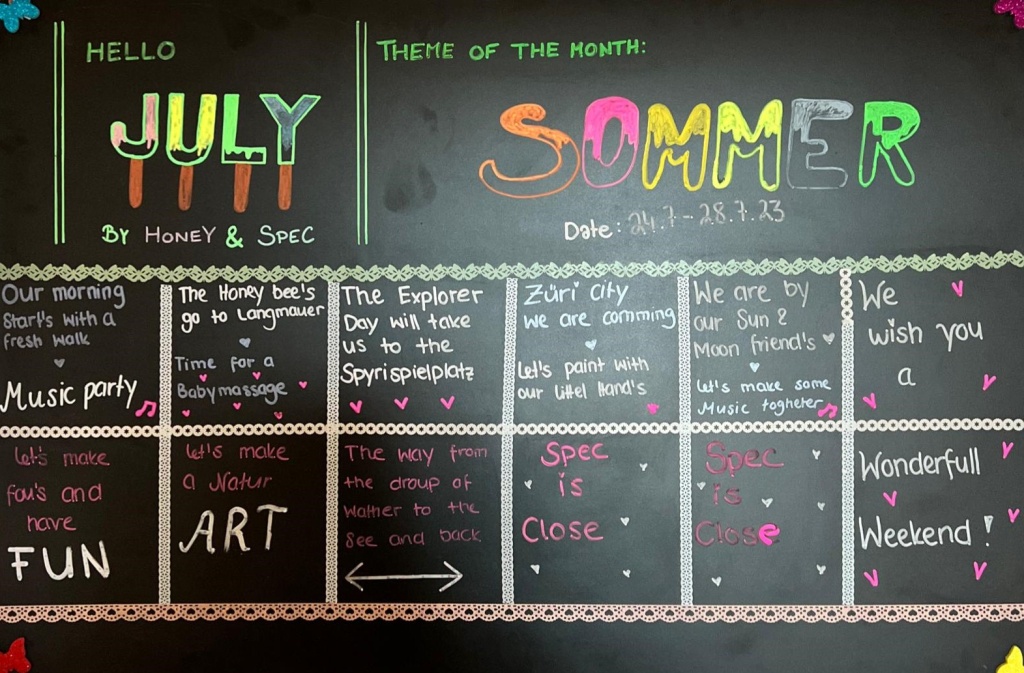 HELLO
JULY
BY HONEY & SPEC
THEME OF THE MONTH:
SOMMER
Date: 24.7 - 28.7.23
Our morning
Start's with a
fresh walk
Music party
The Honey bee's
go to Langmauer
Time for a
Babymassage
The Explorer
Day will take
us to the
Spyrispielplatz
Züri city
we are comming
Let's paint with
our littel Hand's
We are by
our Sun &
Moon friend's
Let's make some
Music togheter
We
wish you
a
Let's make
fou's and
have
FUN
Let's make
a Natur
ART
The way from
the droup of
wather to the
see and back
Spec
is
Close
Spec
is
Close
Wonderfull
Weekend!